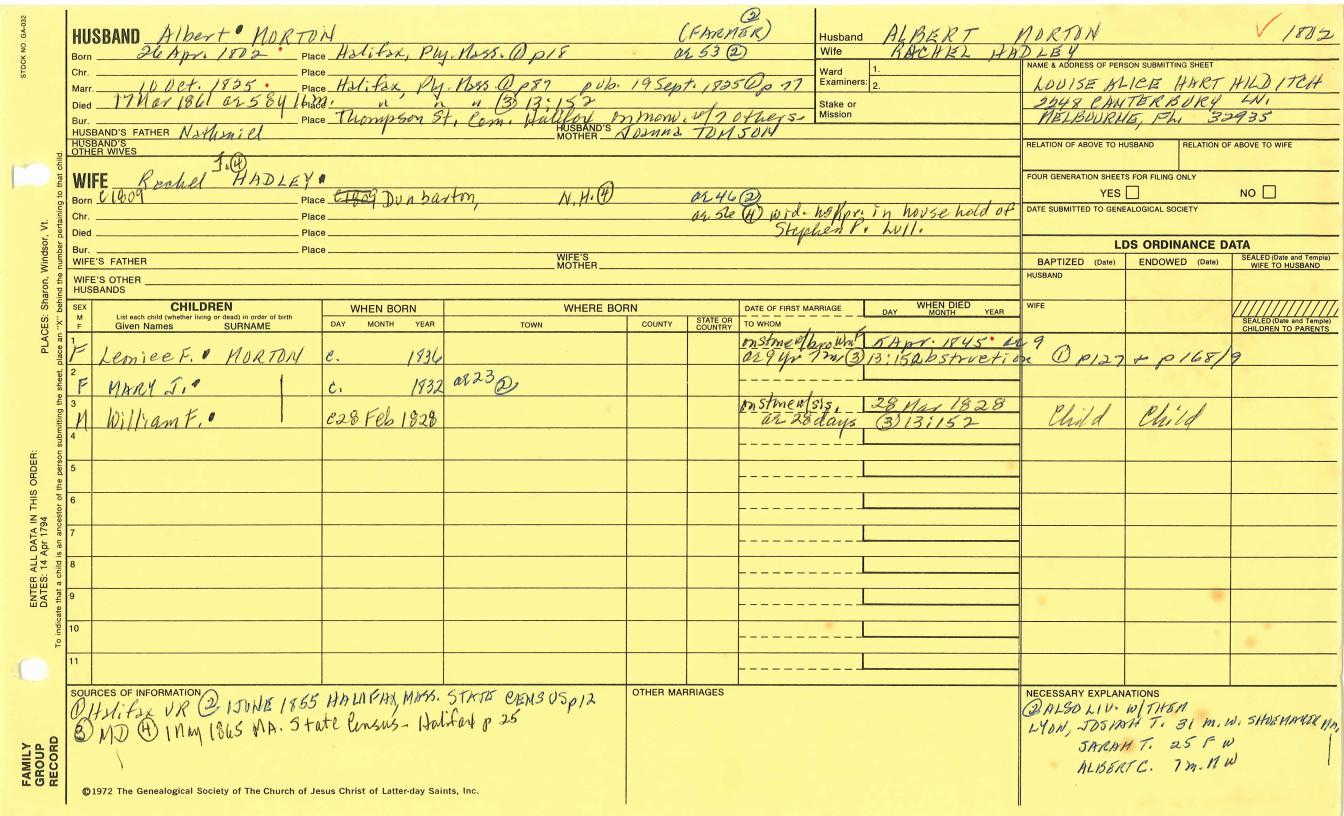 STOCK NO. GA-032
PLACES: Sharon, Windsor, Vt.
ENTER ALL DATA IN THIS ORDER:
DATES: 14 Apr 1794
To indicate that a child is an ancestor of the person submitting the sheet, place an "X" behind the number pertaining to that child.
FAMILY GROUP RECORD
HUSBAND Albert MORTON (FARMER) ②
Born 26 Apr. 1802 Place Halifax, Ply. Mass. ① p18 ae 53 ②
Chr. Place
Marr. 10 Oct. 1825 Place Halifax, Ply. Mass ① p87 pub. 19 Sept. 1825 ① p 77
Died 17 Mar 1861 ae 58y Place " " " ③ 13:152
Bur. Place Thompson St. Cem. Halifax on mon. w/7 others
HUSBAND'S FATHER Nathaniel HUSBAND'S MOTHER Joanna TOMSON
HUSBAND'S OTHER WIVES
WIFE Rachel J. ④ HADLEY
Born c1809 Place Dunbarton, N.H. ④ ae 46 ②
Chr. Place ae 56 ④ wid. in household of
Died Place Stephen P. Lull.
Bur. Place
WIFE'S FATHER WIFE'S MOTHER
WIFE'S OTHER HUSBANDS
Husband ALBERT MORTON 1802
Wife RACHEL HADLEY
Ward Examiners: 1. 2.
Stake or Mission
NAME & ADDRESS OF PERSON SUBMITTING SHEET
LOUISE ALICE HART HILDITCH
2248 CANTERBURY LN.
MELBOURNE, FL. 32935
RELATION OF ABOVE TO HUSBAND RELATION OF ABOVE TO WIFE
FOUR GENERATION SHEETS FOR FILING ONLY
YES NO
DATE SUBMITTED TO GENEALOGICAL SOCIETY
LDS ORDINANCE DATA
BAPTIZED (Date) ENDOWED (Date) SEALED (Date and Temple) WIFE TO HUSBAND
HUSBAND
WIFE
SEALED (Date and Temple) CHILDREN TO PARENTS
SEX M F
CHILDREN
List each child (whether living or dead) in order of birth
Given Names SURNAME
WHEN BORN
DAY MONTH YEAR
WHERE BORN
TOWN COUNTY STATE OR COUNTRY
DATE OF FIRST MARRIAGE
TO WHOM
WHEN DIED
DAY MONTH YEAR
1 F Leniece F. MORTON c. 1836 5 Apr. 1845 ae 9
ae 9 yr 7m ③ 13:152 obstruction ① p127 + p168/9
2 F MARY J. c. 1832 ae 23 ②
3 M William F. c28 Feb 1828 on stmen/sis. 28 Mar 1828
ae 28 days ③ 13:152 Child Child
4
5
6
7
8
9
10
11
SOURCES OF INFORMATION
① Halifax VR ② 1 JUNE 1855 HALIFAX, MASS. STATE CENSUS p12
③ MD ④ 1 May 1865 MA. State Census - Halifax p 25
OTHER MARRIAGES
NECESSARY EXPLANATIONS
② ALSO LIV. W/THEM
LYON, JOSIAH T. 31 m. W. SHOEMAKER
SARAH T. 25 F W
ALBERT C. 7m. M W
©1972 The Genealogical Society of The Church of Jesus Christ of Latter-day Saints, Inc.